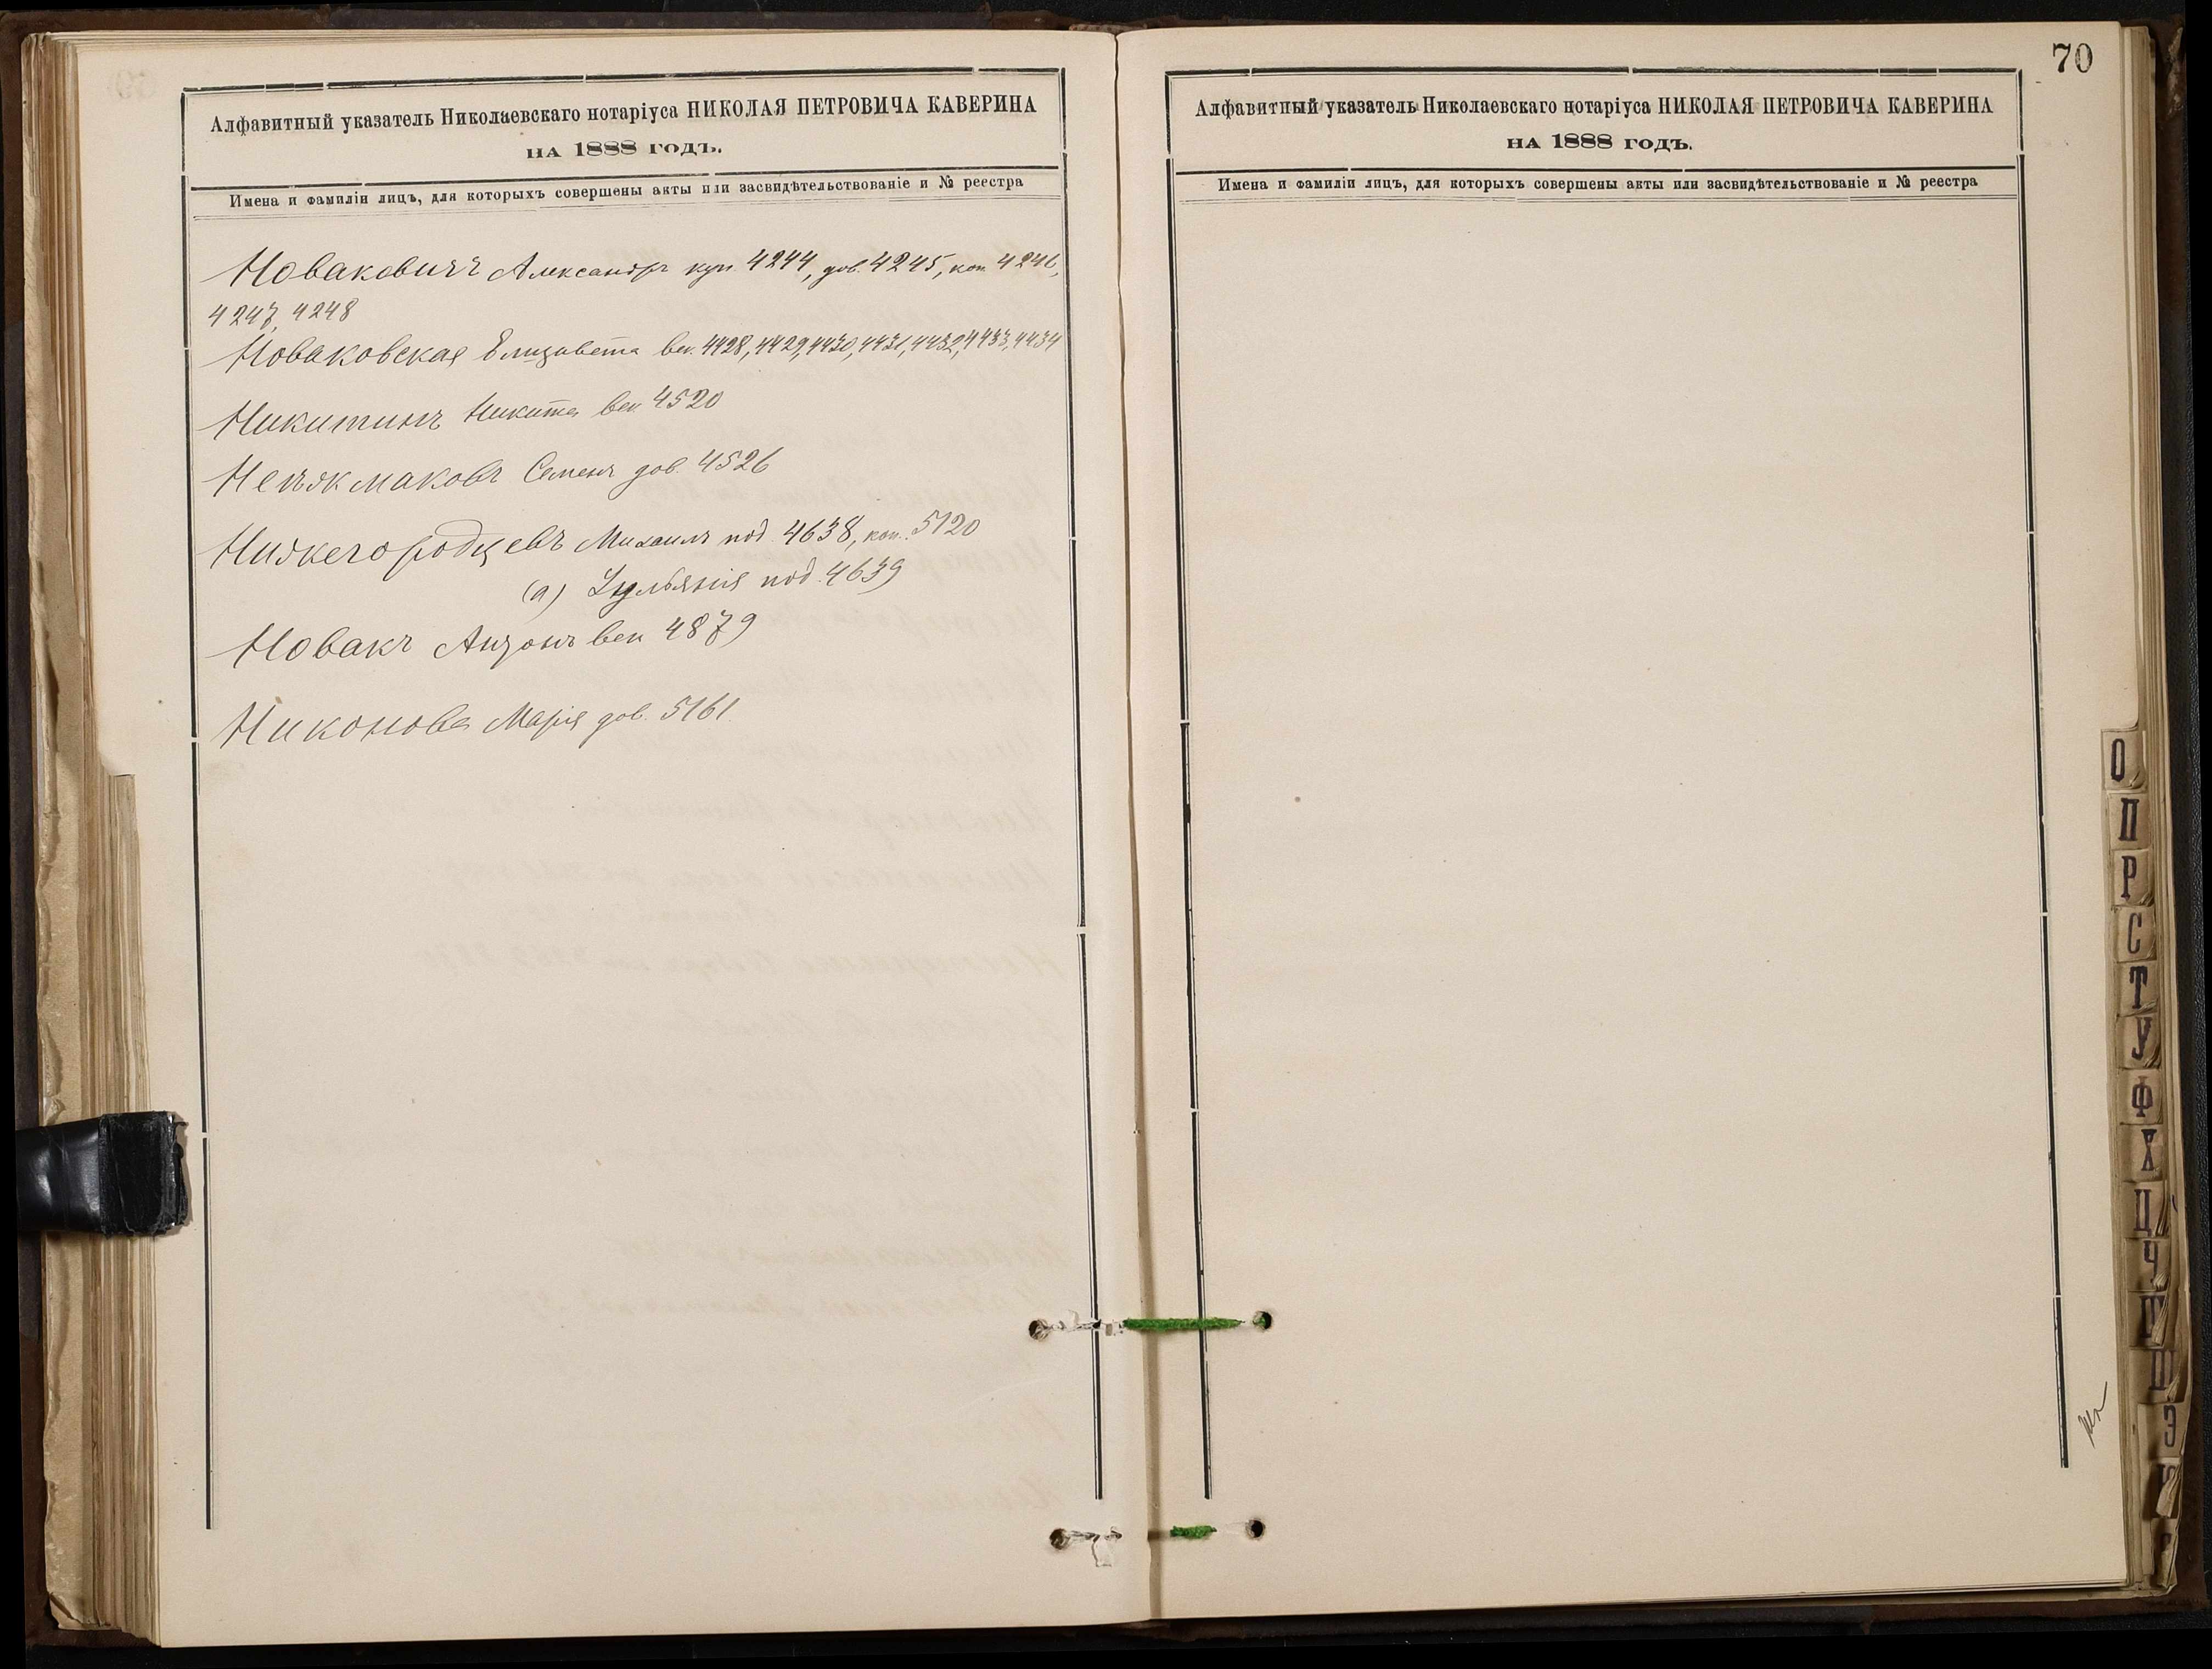 Алфавитный указатель Николаевскаго нотаріуса НИКОЛАЯ ПЕТРОВИЧА КАВЕРИНА
НА 1888 ГОДЪ.
Имена и фамиліи лицъ, для которыхъ совершены акты или засвидѣтельствованіе и № реестра
Новаковичъ Александръ куп. 4244, дов. 4245, коп. 4246,
4247, 4248
Новаковская Елизавета век. 4428, 4429, 4430, 4431, 4432, 4433, 4434
Никитинъ Никита век 4520
Семенъ дов. 4526
Нижегородцевъ Михаилъ под. 4638, коп. 5120
(а) под. 4639
Новакъ век 4879
Никонова Марія дов. 5161.
70
Алфавитный указатель Николаевскаго нотаріуса НИКОЛАЯ ПЕТРОВИЧА КАВЕРИНА
НА 1888 ГОДЪ.
Имена и фамиліи лицъ, для которыхъ совершены акты или засвидѣтельствованіе и № реестра
О
П
Р
С
Т
У
Ф
Х
Ц
Ч
Ш
Э